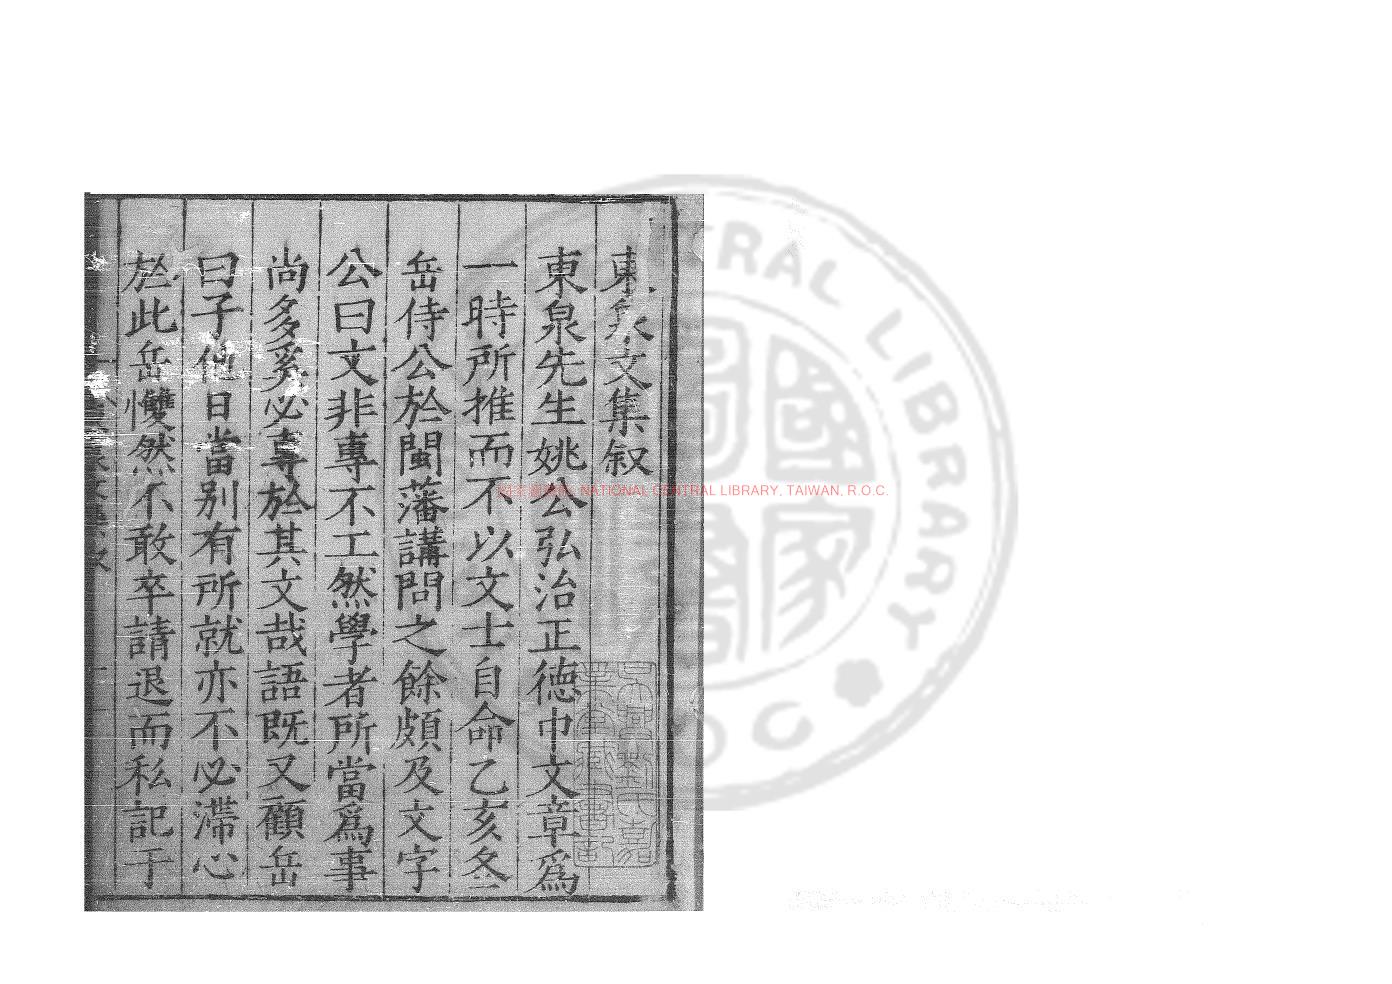 東泉文集叙
東泉先生姚公弘治正德中文章爲
一時所推而不以文士自命乙亥冬
岳侍公於閩藩講問之餘頗及文字
公曰文非專不工然學者所當爲事
尚多奚必專於其文哉語既又顧岳
曰子他日當别有所就亦不必滯心
於此岳戄然不敢卒請退而私記于
NATIONAL CENTRAL LIBRARY, TAIWAN, R.O.C.